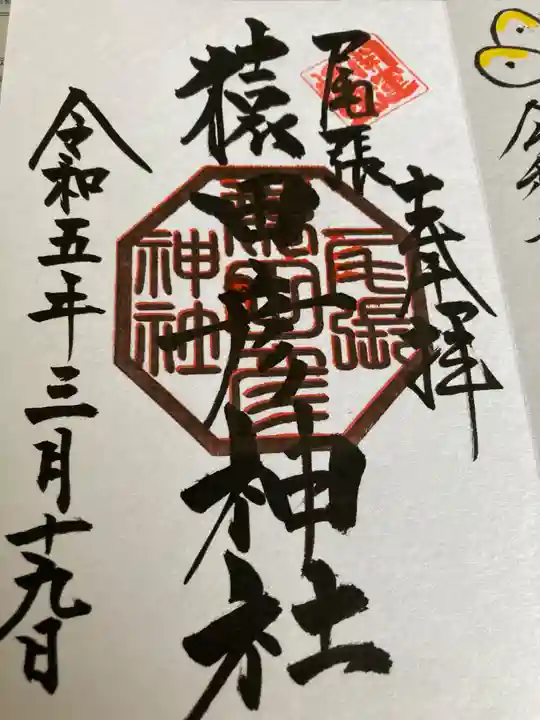 奉拝
尾張
猿田彦神社
令和五年三月十九日
尾張
猿田彦
神社